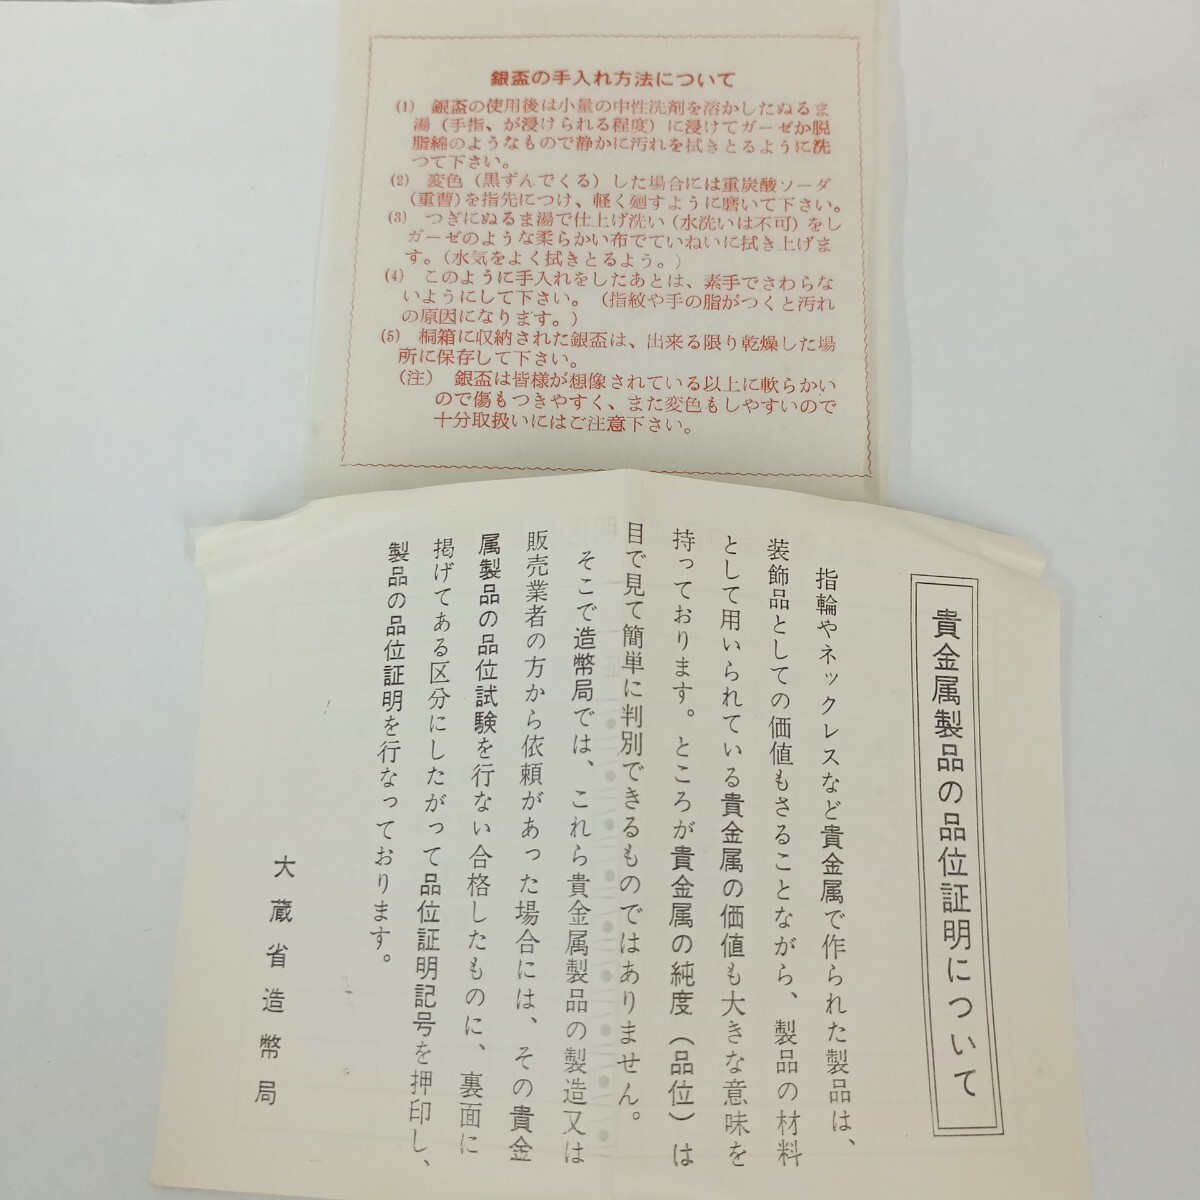 銀盃の手入れ方法について
(1) 銀盃の使用後は小量の中性洗剤を溶かしたぬるま
湯（手指、が浸けられる程度）に浸けてガーゼか脱
脂綿のようなもので静かに汚れを拭きとるように洗
つて下さい。
(2) 変色（黒ずんでくる）した場合には重炭酸ソーダ
（重曹）を指先につけ、軽く廻すように磨いて下さい。
(3) つぎにぬるま湯で仕上げ洗い（水洗いは不可）をし
ガーゼのような柔らかい布でていねいに拭き上げま
す。（水気をよく拭きとるよう。）
(4) このように手入れをしたあとは、素手でさわらな
いようにして下さい。（指紋や手の脂がつくと汚れ
の原因になります。）
(5) 桐箱に収納された銀盃は、出来る限り乾燥した場
所に保存して下さい。
（注） 銀盃は皆様が想像されている以上に軟らかい
ので傷もつきやすく、また変色もしやすいので
十分取扱いにはご注意下さい。
貴金属製品の品位証明について
指輪やネックレスなど貴金属で作られた製品は、
装飾品としての価値もさることながら、製品の材料
として用いられている貴金属の価値も大きな意味を
持っております。ところが貴金属の純度（品位）は
目で見て簡単に判別できるものではありません。
そこで造幣局では、これら貴金属製品の製造又は
販売業者の方から依頼があった場合には、その貴金
属製品の品位試験を行ない合格したものに、裏面に
掲げてある区分にしたがって品位証明記号を押印し、
製品の品位証明を行なっております。
大蔵省造幣局